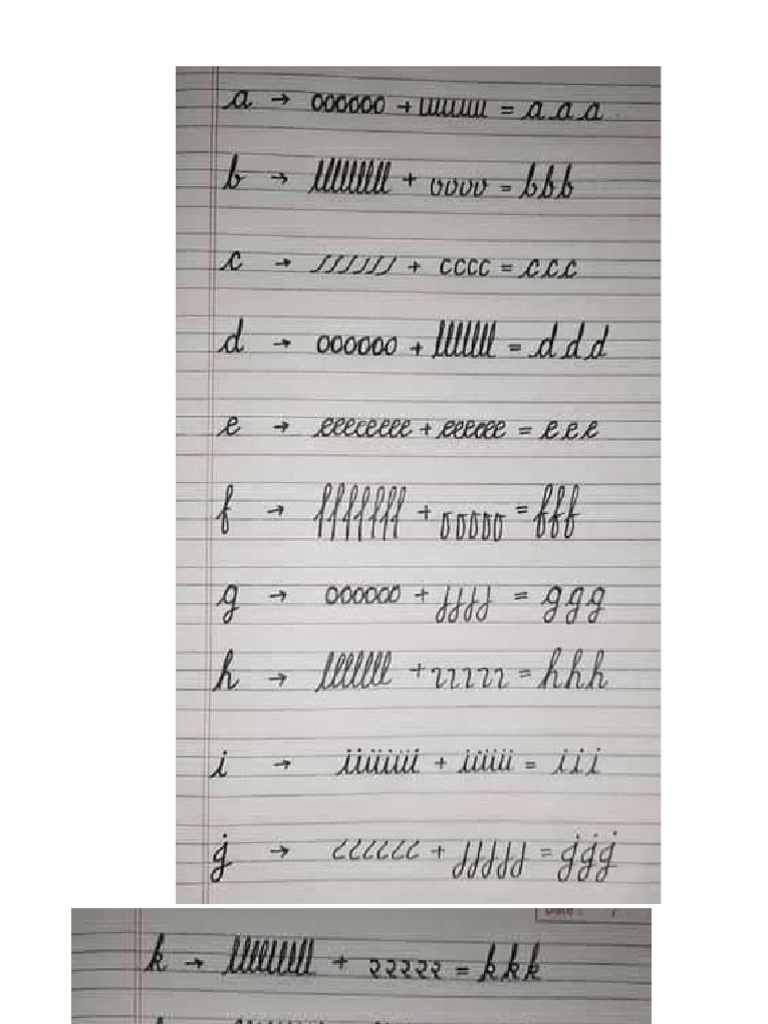 a → oooooo + uuuuuu = a a a
b → lllllllll + vvvv = b b b
c → ////// + cccc = c c c
d → oooooo + lllllll = d d d
e → eeeeeeee + eeeeee = e e e
f → fffffff + ooooo = f f f
g → oooooo + jjjj = g g g
h → lllllll + ııııı = h h h
i → iiiiiii + iiiii = i i i
j → ‹‹‹‹‹‹ + jjjjj = j j j
Date : /
k → lllllllll + 22222 = k k k